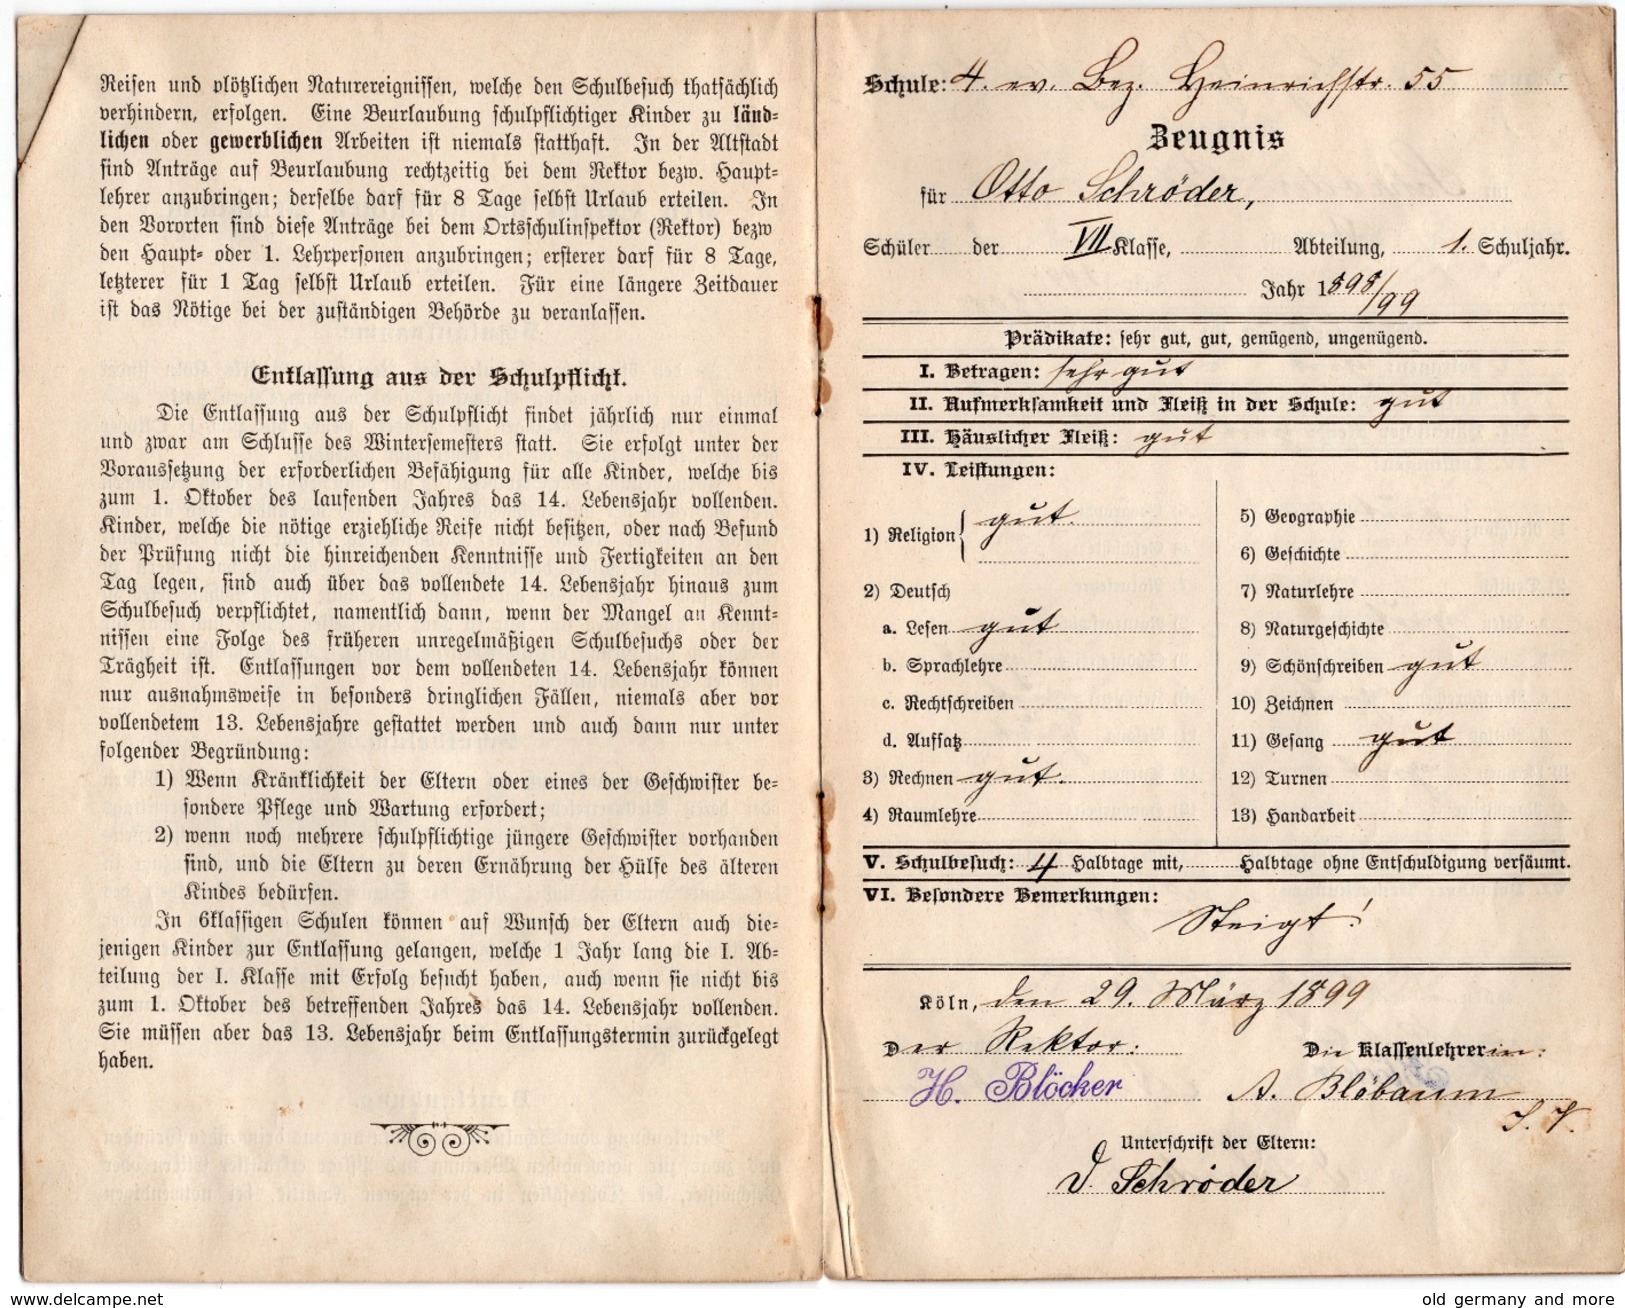 Reisen und plötzlichen Naturereignissen, welche den Schulbesuch thatsächlich
verhindern, erfolgen. Eine Beurlaubung schulpflichtiger Kinder zu länd-
lichen oder gewerblichen Arbeiten ist niemals statthaft. In der Altstadt
sind Anträge auf Beurlaubung rechtzeitig bei dem Rektor bezw. Haupt-
lehrer anzubringen; derselbe darf für 8 Tage selbst Urlaub erteilen. In
den Vororten sind diese Anträge bei dem Ortsschulinspektor (Rektor) bezw
den Haupt- oder 1. Lehrpersonen anzubringen; ersterer darf für 8 Tage,
letzterer für 1 Tag selbst Urlaub erteilen. Für eine längere Zeitdauer
ist das Nötige bei der zuständigen Behörde zu veranlassen.
Entlassung aus der Schulpflicht.
Die Entlassung aus der Schulpflicht findet jährlich nur einmal
und zwar am Schlusse des Wintersemesters statt. Sie erfolgt unter der
Voraussetzung der erforderlichen Befähigung für alle Kinder, welche bis
zum 1. Oktober des laufenden Jahres das 14. Lebensjahr vollenden.
Kinder, welche die nötige erziehliche Reife nicht besitzen, oder nach Befund
der Prüfung nicht die hinreichenden Kenntnisse und Fertigkeiten an den
Tag legen, sind auch über das vollendete 14. Lebensjahr hinaus zum
Schulbesuch verpflichtet, namentlich dann, wenn der Mangel an Kennt-
nissen eine Folge des früheren unregelmäßigen Schulbesuchs oder der
Trägheit ist. Entlassungen vor dem vollendeten 14. Lebensjahr können
nur ausnahmsweise in besonders dringlichen Fällen, niemals aber vor
vollendetem 13. Lebensjahre gestattet werden und auch dann nur unter
folgender Begründung:
1) Wenn Kränklichkeit der Eltern oder eines der Geschwister be-
sondere Pflege und Wartung erfordert;
2) wenn noch mehrere schulpflichtige jüngere Geschwister vorhanden
sind, und die Eltern zu deren Ernährung der Hülfe des älteren
Kindes bedürfen.
In 6klassigen Schulen können auf Wunsch der Eltern auch die-
jenigen Kinder zur Entlassung gelangen, welche 1 Jahr lang die I. Ab-
teilung der I. Klasse mit Erfolg besucht haben, auch wenn sie nicht bis
zum 1. Oktober des betreffenden Jahres das 14. Lebensjahr vollenden.
Sie müssen aber das 13. Lebensjahr beim Entlassungstermin zurückgelegt
haben.
Schule: 4. ev. Bez. Heinrichstr. 55
Zeugnis
für Otto Schröder,
Schüler der VII Klasse, Abteilung, 1. Schuljahr.
Jahr 1898/99
Prädikate: sehr gut, gut, genügend, ungenügend.
I. Betragen: sehr gut
II. Aufmerksamkeit und Fleiß in der Schule: gut
III. Häuslicher Fleiß: gut
IV. Leistungen:
1) Religion { gut.
2) Deutsch
a. Lesen gut
b. Sprachlehre
c. Rechtschreiben
d. Aufsatz
3) Rechnen gut.
4) Raumlehre
5) Geographie
6) Geschichte
7) Naturlehre
8) Naturgeschichte
9) Schönschreiben gut
10) Zeichnen
11) Gesang gut
12) Turnen
13) Handarbeit
V. Schulbesuch: 4 Halbtage mit, Halbtage ohne Entschuldigung versäumt.
VI. Besondere Bemerkungen:
Steigt!
Köln, den 29. März 1899
Der Rektor: Die Klassenlehrerin:
H. Blöcker A. Blöbaum
Unterschrift der Eltern:
Schröder
www.delcampe.net
old germany and more